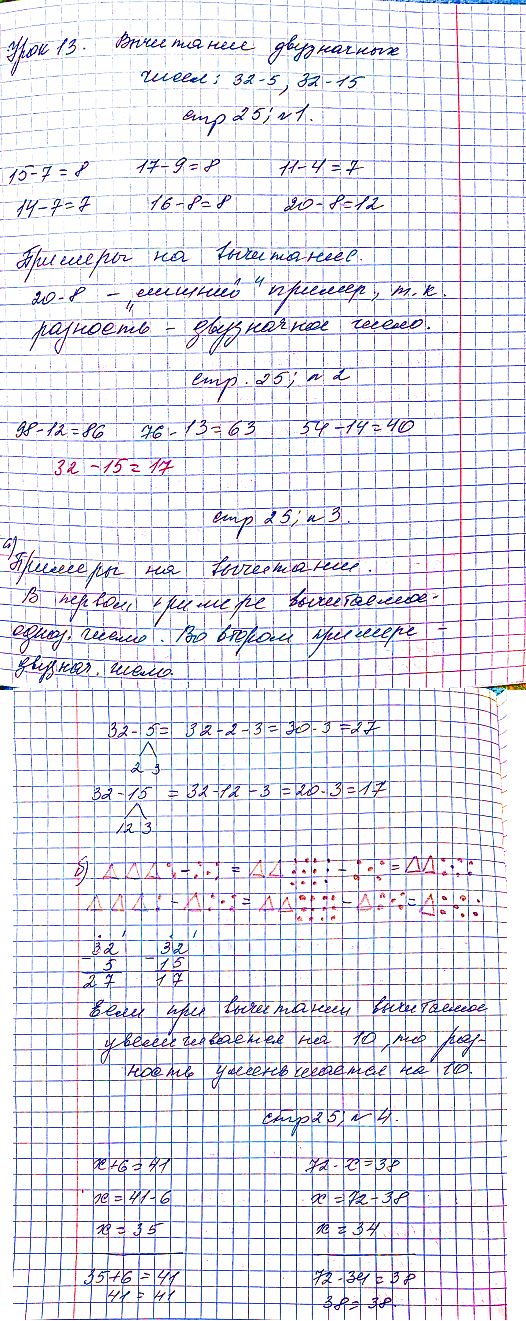 Урок 13. Вычитание двузначных
чисел: 32-5, 32-15
стр 25; №1.
15-7=8 17-9=8 11-4=7
14-7=7 16-8=8 20-8=12
Примеры на вычитание.
20-8 - "лишний" пример, т.к.
разность - двузначное число.
стр. 25; №2
98-12=86 76-13=63 54-14=40
32-15=17
стр 25; №3.
а)
Примеры на вычитание.
В первом примере вычитаемое-
одноз. число. Во втором примере -
двузнач. число.
32-5= 32-2-3=30-3=27
2 3
32-15 =32-12-3=20-3=17
12 3
б)
32 32
- 5 - 15
27 17
Если при вычитании вычитаемое
увеличивается на 10, то раз-
ность уменьшается на 10.
стр 25; №4.
х+6=41 72-х=38
х=41-6 х=72-38
х=35 х=34
35+6=41 72-34=38
41=41 38=38.